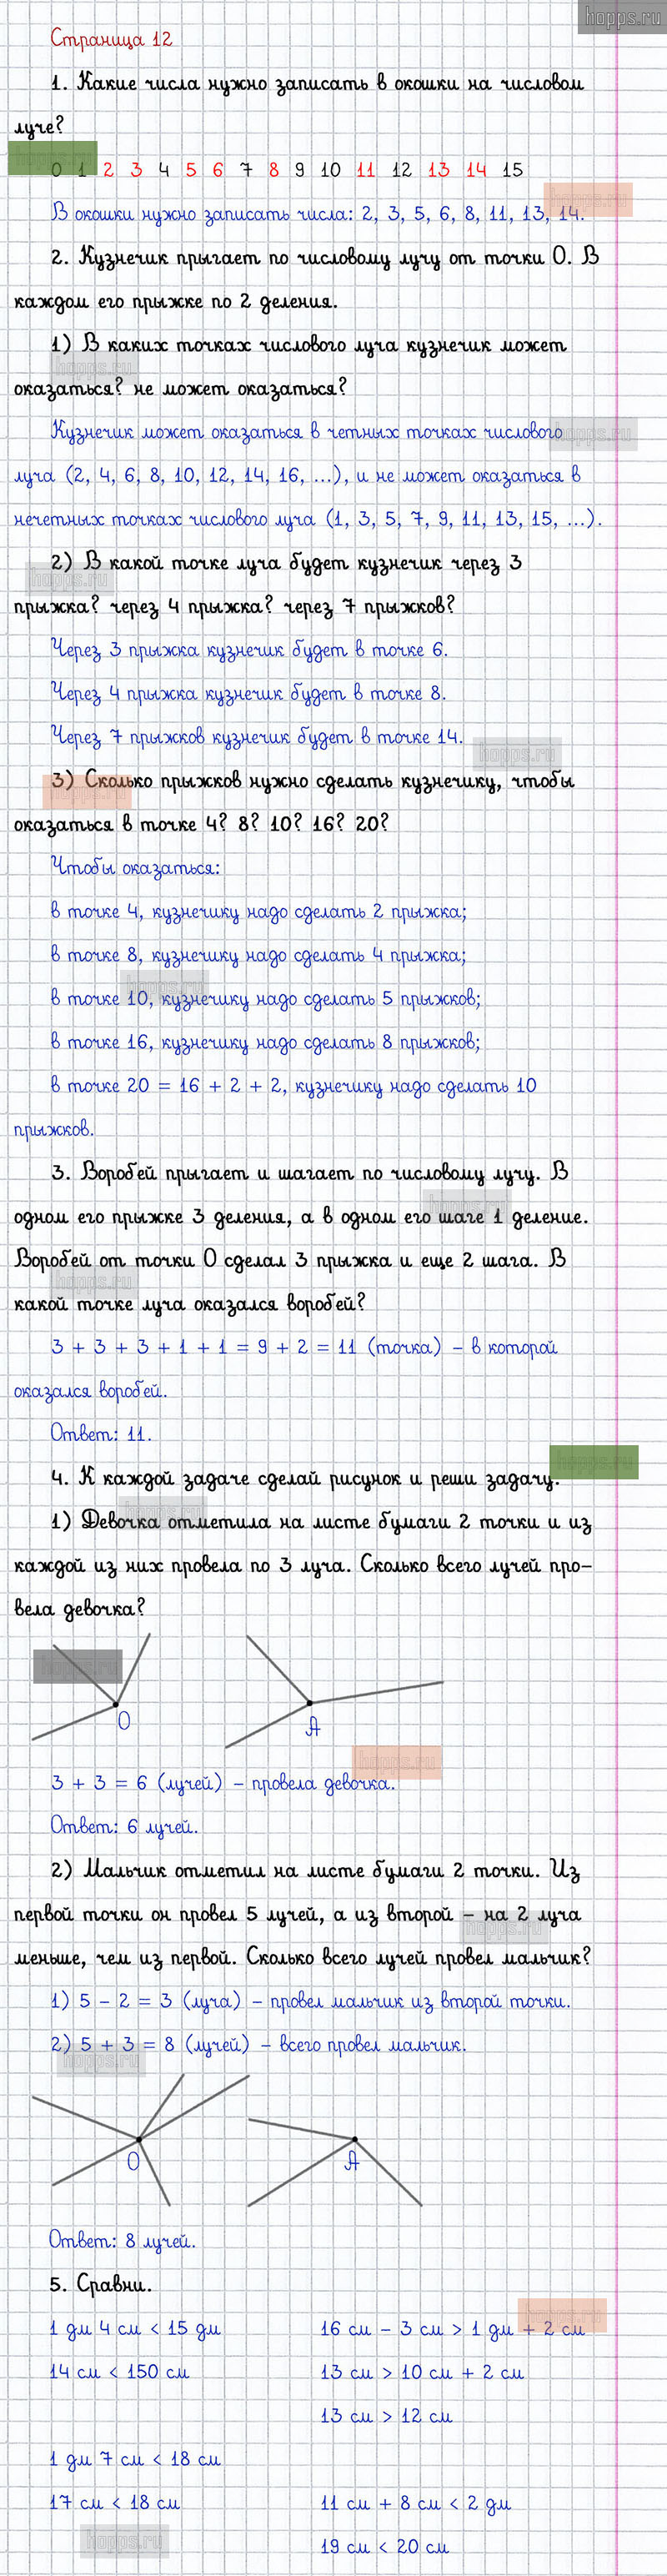 hopps.ru
Страница 12
1. Какие числа нужно записать в окошки на числовом
луче?
0 1 2 3 4 5 6 7 8 9 10 11 12 13 14 15
hopps.ru
В окошки нужно записать числа: 2, 3, 5, 6, 8, 11, 13, 14.
2. Кузнечик прыгает по числовому лучу от точки О. В
каждом его прыжке по 2 деления.
1) В каких точках числового луча кузнечик может
hopps.ru
оказаться? не может оказаться?
Кузнечик может оказаться в четных точках числового
hopps.ru
луча (2, 4, 6, 8, 10, 12, 14, 16, ...), и не может оказаться в
нечетных точках числового луча (1, 3, 5, 7, 9, 11, 13, 15, ...).
2) В какой точке луча будет кузнечик через 3
hopps.ru
прыжка? через 4 прыжка? через 7 прыжков?
Через 3 прыжка кузнечик будет в точке 6.
Через 4 прыжка кузнечик будет в точке 8.
Через 7 прыжков кузнечик будет в точке 14.
hopps.ru
3) Сколько прыжков нужно сделать кузнечику, чтобы
hopps.ru
оказаться в точке 4? 8? 10? 16? 20?
Чтобы оказаться:
в точке 4, кузнечику надо сделать 2 прыжка;
в точке 8, кузнечику надо сделать 4 прыжка;
hopps.ru
в точке 10, кузнечику надо сделать 5 прыжков;
в точке 16, кузнечику надо сделать 8 прыжков;
в точке 20 = 16 + 2 + 2, кузнечику надо сделать 10
прыжков.
3. Воробей прыгает и шагает по числовому лучу. В
hopps.ru
одном его прыжке 3 деления, а в одном его шаге 1 деление.
Воробей от точки О сделал 3 прыжка и еще 2 шага. В
hopps.ru
какой точке луча оказался воробей?
3 + 3 + 3 + 1 + 1 = 9 + 2 = 11 (точка) – в которой
оказался воробей.
Ответ: 11.
hopps.ru
4. К каждой задаче сделай рисунок и реши задачу.
hopps.ru
1) Девочка отметила на листе бумаги 2 точки и из
каждой из них провела по 3 луча. Сколько всего лучей про-
вела девочка?
hopps.ru
О А
hopps.ru
3 + 3 = 6 (лучей) – провела девочка.
Ответ: 6 лучей.
2) Мальчик отметил на листе бумаги 2 точки. Из
первой точки он провел 5 лучей, а из второй – на 2 луча
hopps.ru
меньше, чем из первой. Сколько всего лучей провел мальчик?
1) 5 – 2 = 3 (луча) – провел мальчик из второй точки.
2) 5 + 3 = 8 (лучей) – всего провел мальчик.
hopps.ru
О А
Ответ: 8 лучей.
5. Сравни.
hopps.ru
1 дм 4 см < 15 дм 16 см – 3 см > 1 дм + 2 см
14 см < 150 см 13 см > 10 см + 2 см
13 см > 12 см
1 дм 7 см < 18 см
17 см < 18 см 11 см + 8 см < 2 дм
hopps.ru
19 см < 20 см